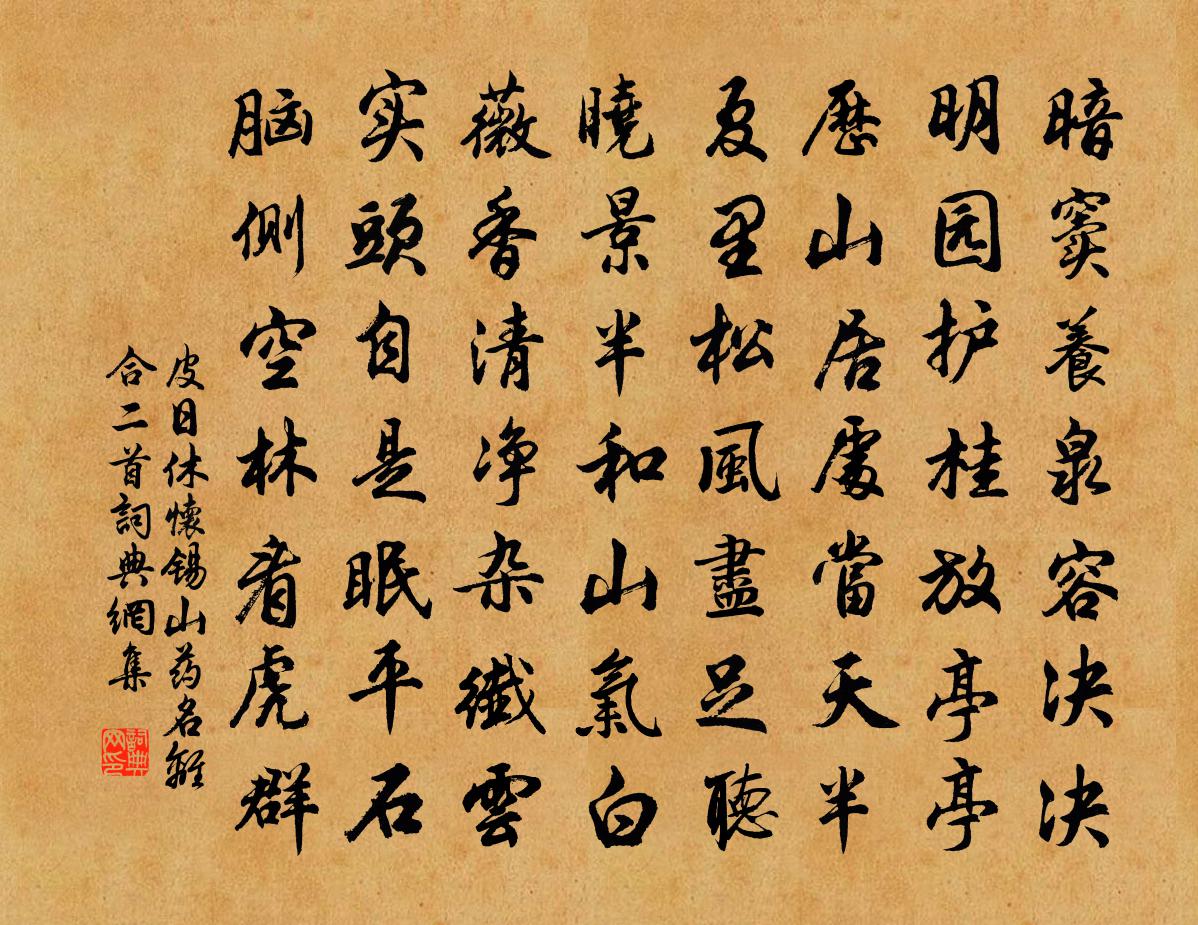 暗窦養泉容决决
明园护桂放亭亭
歷山居處當天半
夏里松風盡足聽
曉景半和山氣白
薇香清净杂纖雲
实頭自是眠平石
脑側空林看虎群
皮日休懷锡山药名離
合二首詞典網集
詞典網印